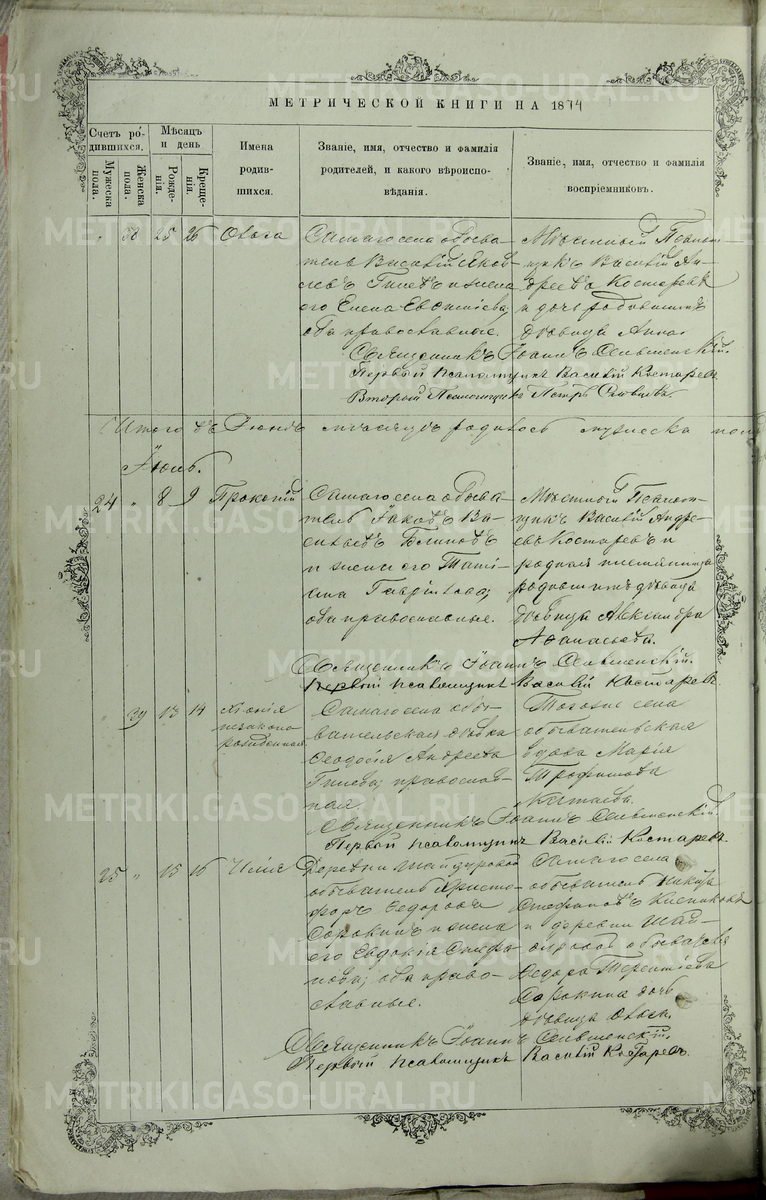 МЕТРИЧЕСКОЙ КНИГИ НА 1874
Счетъ ро-
дившихся.
Мужеска
пола.
Женска
пола.
Мѣсяцъ
и день
Рожде-
нія.
Креще-
нія.
Имена
родив-
шихся.
Званіе, имя, отчество и фамилія
родителей, и какого вѣроиспо-
вѣданія.
Званіе, имя, отчество и фамилія
воспріемниковъ.
38 25 26 Ольга
Самаго села обыва-
тель Василій Яков-
левъ Гилевъ и жена
его Елена
оба православные.
Мѣстный Псалом-
щикъ Василій Ан-
дреевъ Костаревъ
и дочь
дѣвица Анна.
Священникъ Іоаннъ
Первый Псаломщикъ Василій Костаревъ
Второй Псаломщикъ Петръ
Итого въ Іюнѣ мѣсяцѣ родилось мужеска пола
Іюль.
24 „ 8 9 Прокопій
Самаго села обыва-
тель Іаковъ Ва-
сильевъ Блиновъ
и жена его Тать-
яна Гаврилова;
оба православные.
Мѣстный Псалом-
щикъ Василій Андре-
евъ Костаревъ и
родная племянница
дѣвица Александра
Афанасьева.
Священникъ Іоаннъ
Первый псаломщикъ Василій Костаревъ
39 13 14
незаконо-
рожденная
Самаго села обы-
вательская дѣвка
Ѳеодосія Андреева
Гилева; православ-
ная.
Тогоже села
обывательская
вдова Марія
Трофимова
Китаева.
Священникъ Іоаннъ
Первый псаломщикъ Василій Костаревъ
25 „ 15 16 Илія
Деревни Шайдуровой
обыватель Христо-
форъ Ѳедоровъ
Сорокинъ и жена
его Евдокія Стефа-
нова; оба право-
славные.
Самаго села
обыватель Никита
Стефановъ
и деревни Шай-
дуровой обывателя
Ѳедора Терентіева
Сорокина дочь
дѣвица Ольга.
Священникъ Іоаннъ
Первый псаломщикъ Василій Костаревъ
METRIKI.GASO-URAL.RU